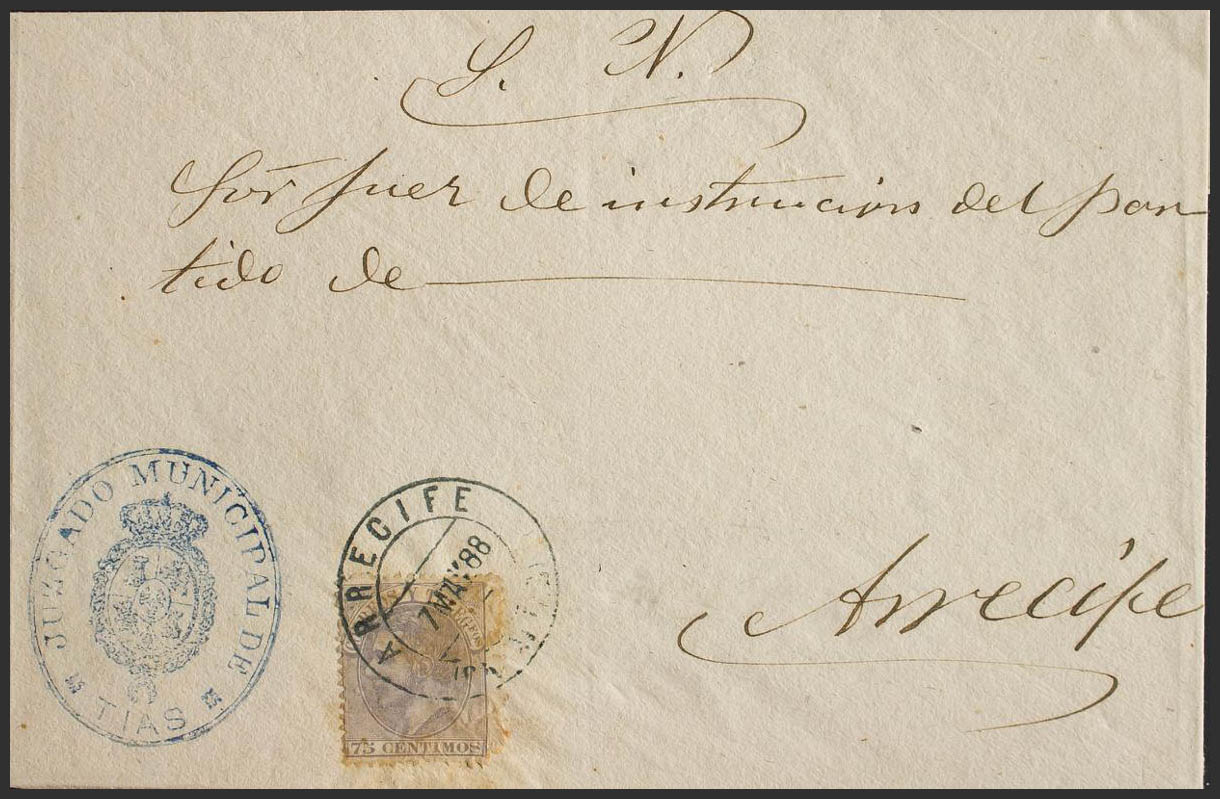 S. N.
Sor̃ Juez de instrucions del par
tido de
Arrecife
JUZGADO MUNICIPAL DE
TIAS
ARRECIFE
7 MAY 88
75 CENTIMOS